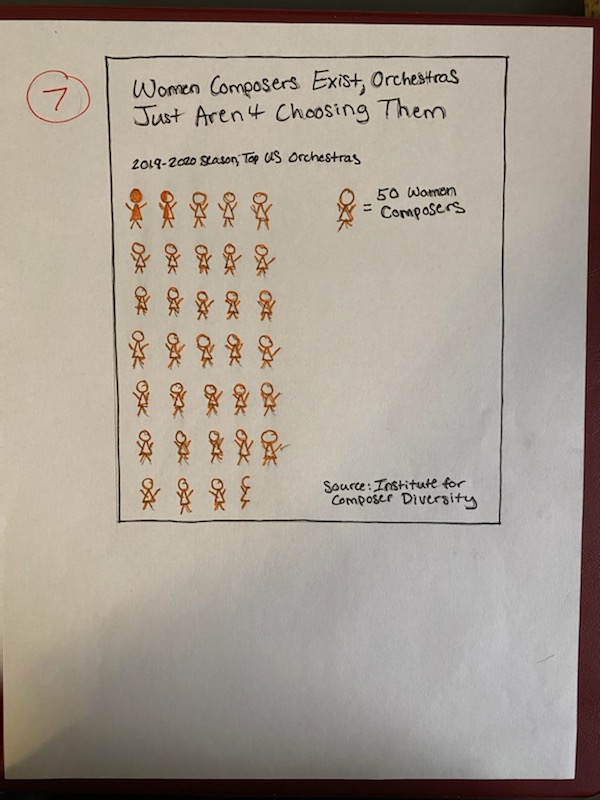 7
Women Composers Exist, Orchestras
Just Aren't Choosing Them
2019-2020 Season, Top US Orchestras
= 50 Women
Composers
Source: Institute for
Composer Diversity